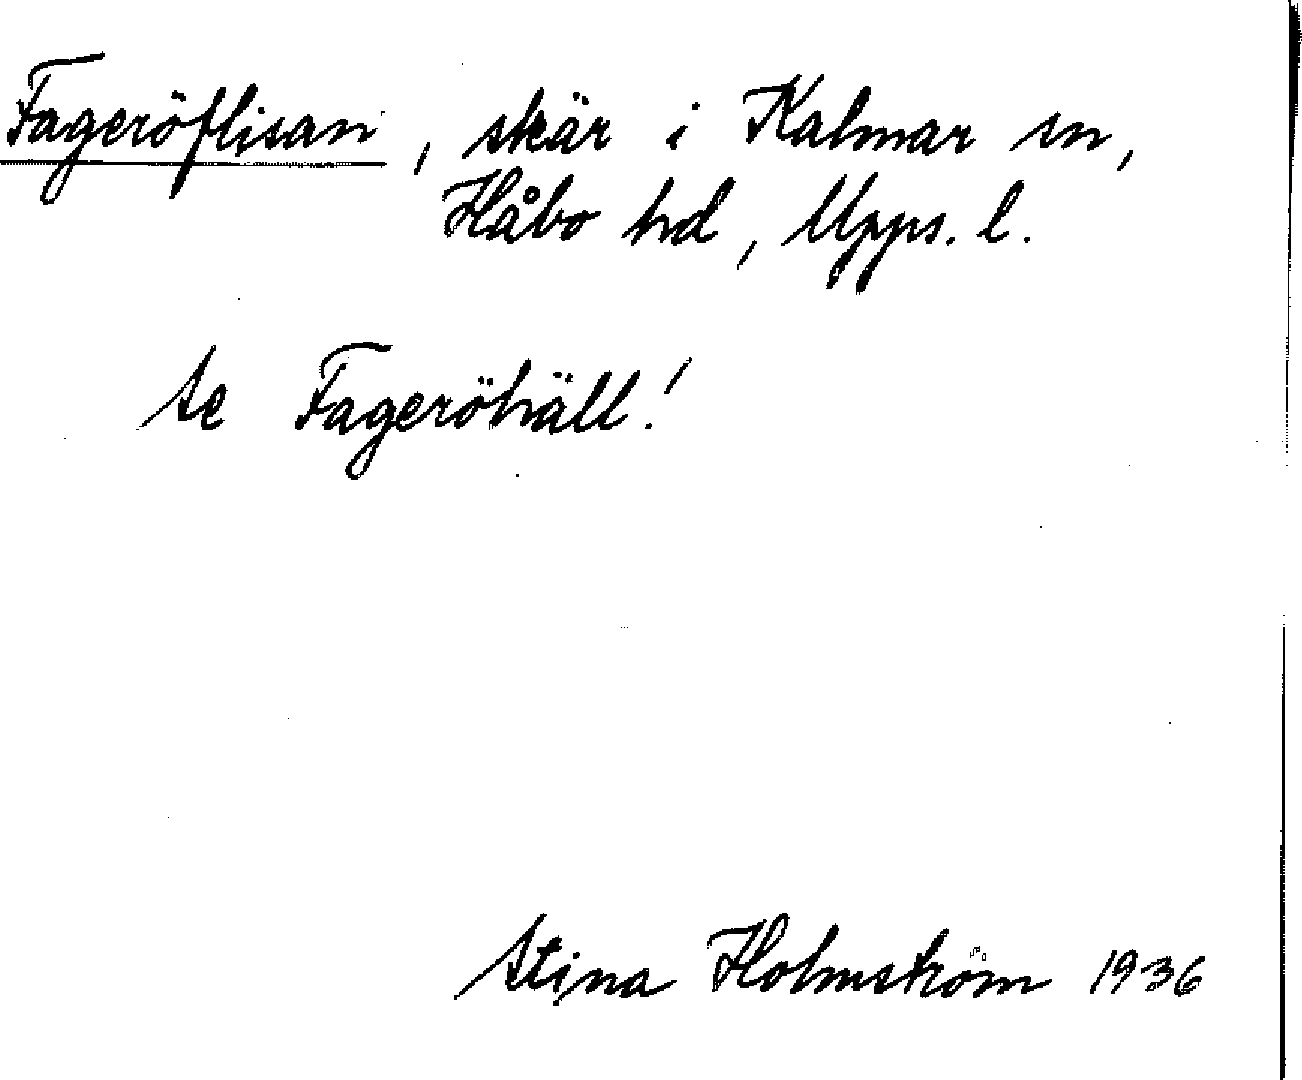 Fageröflisan, skär i Kalmar sn,
Håbo hd, Upps. l.
Se Fageröhäll!
Stina Holmström 1936